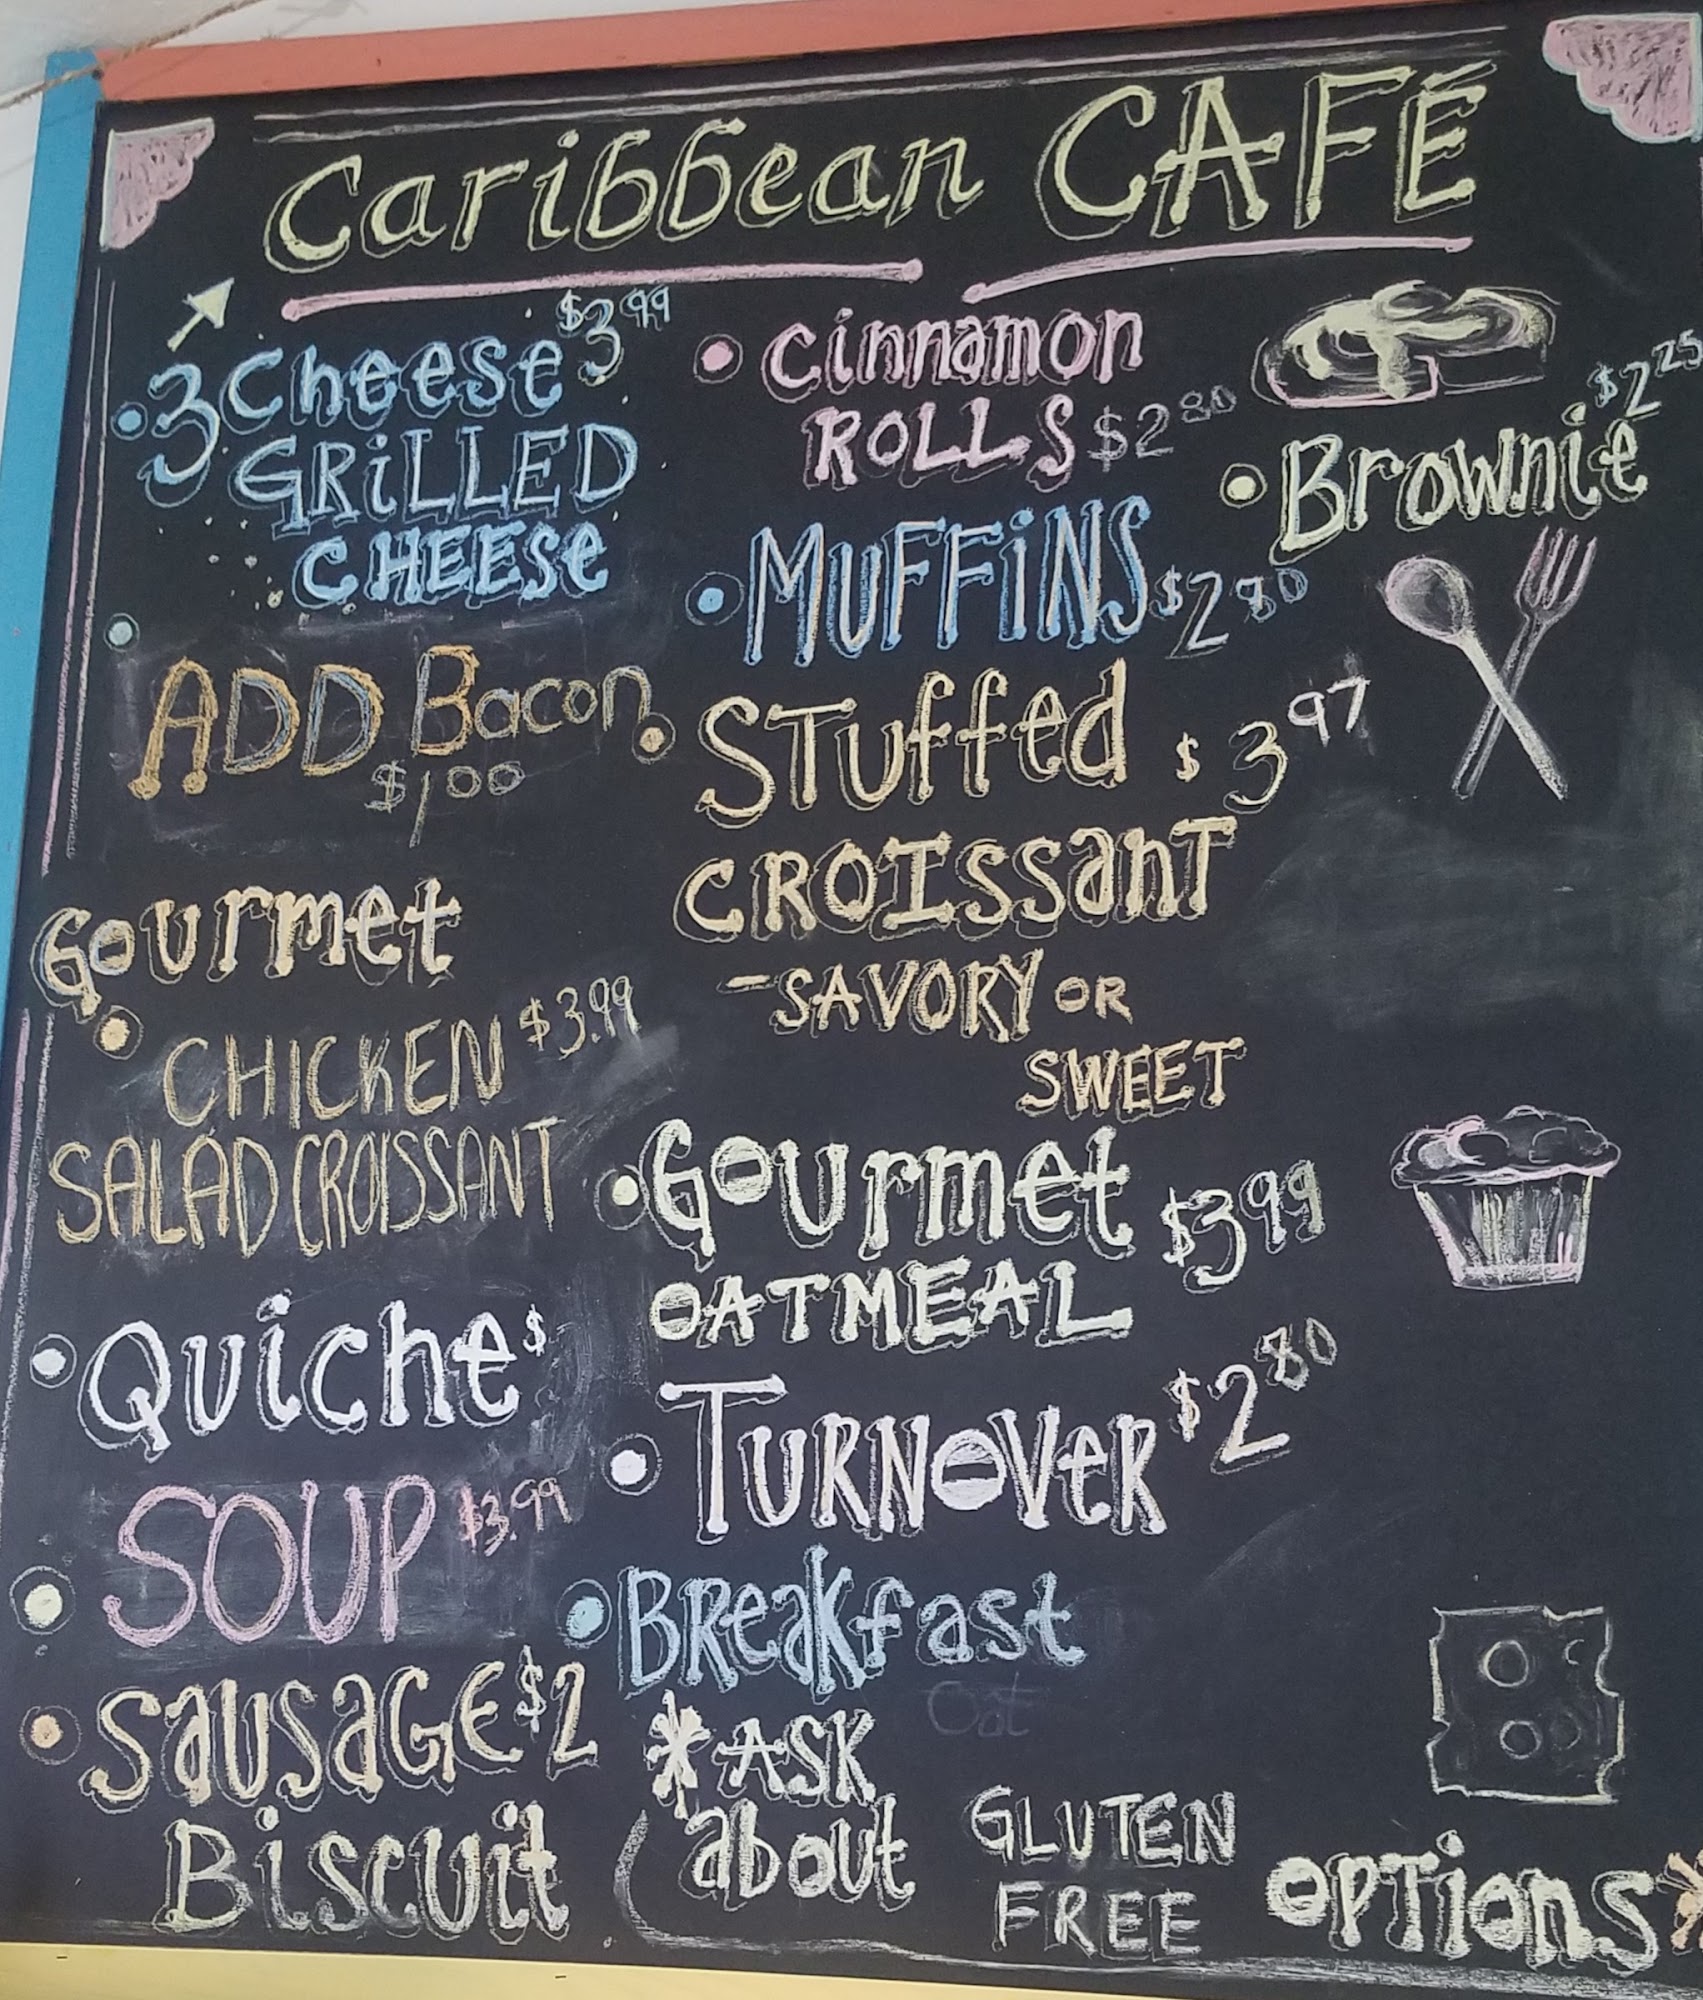 Caribbean CAFÉ
$3.99
3 Cheese
GRiLLED
CHEESE
ADD Bacon
$1.00
Gourmet
CHICKEN $3.99
SALAD CROISSANT
Quiche $
SOUP $3.99
SausaGE $2
Biscuit
Cinnamon
ROLLS $2.80
MUFFiNS $2.80
STuffed $3.97
CROISSanT
-SAVORY OR
SWEET
Gourmet $3.99
OATMEAL
TURNOVeR $2.80
BReakfast
Oat
*ASK
about
GLUTEN
FREE
OPTiOns*
$2.25
Brownie